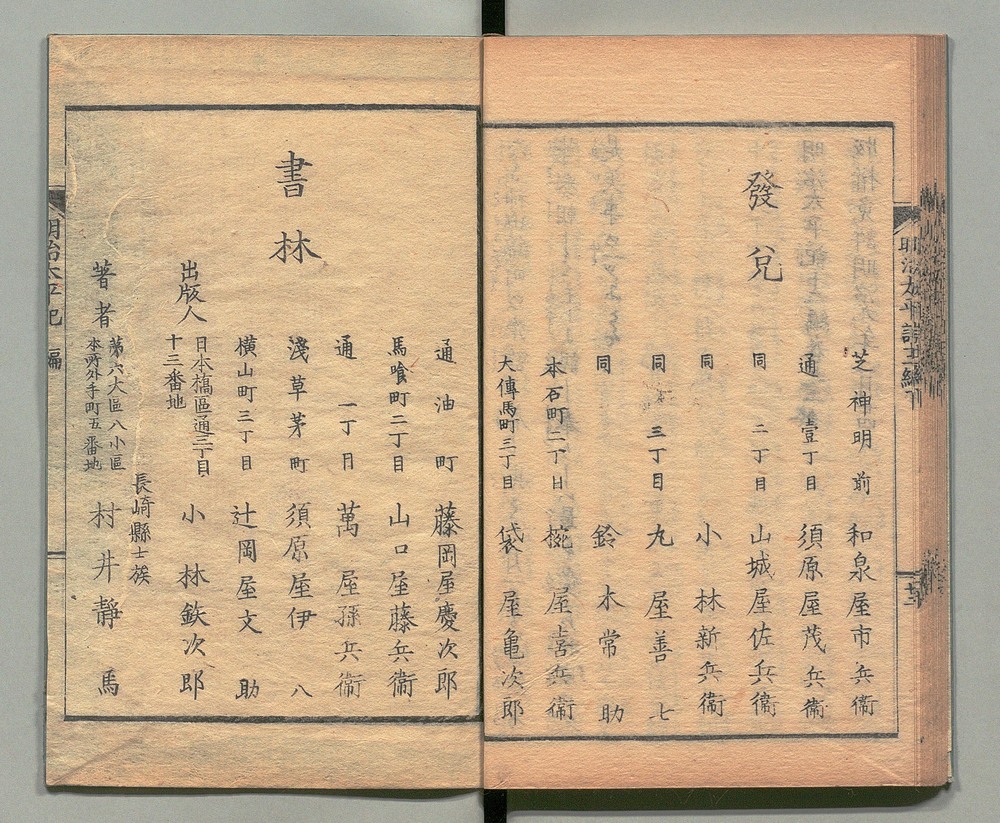 發兌
芝神明前 和泉屋市兵衞
通壹丁目 須原屋茂兵衞
同 二丁目 山城屋佐兵衞
同 小林新兵衞
同 三丁目 丸屋善七
同 鈴木常助
本石町二丁目 椀屋喜兵衞
大傳馬町三丁目 袋屋亀次郎
書林
通油町 藤岡屋慶次郎
馬喰町二丁目 山口屋藤兵衞
通一丁目 萬屋孫兵衞
淺草茅町 須原屋伊八
横山町三丁目 辻岡屋文助
出版人 日本橋區通三丁目
十三番地 小林鉄次郎
長崎縣士族
著者 第六大區八小區
本所外手町五番地 村井靜馬
明治太平記 編